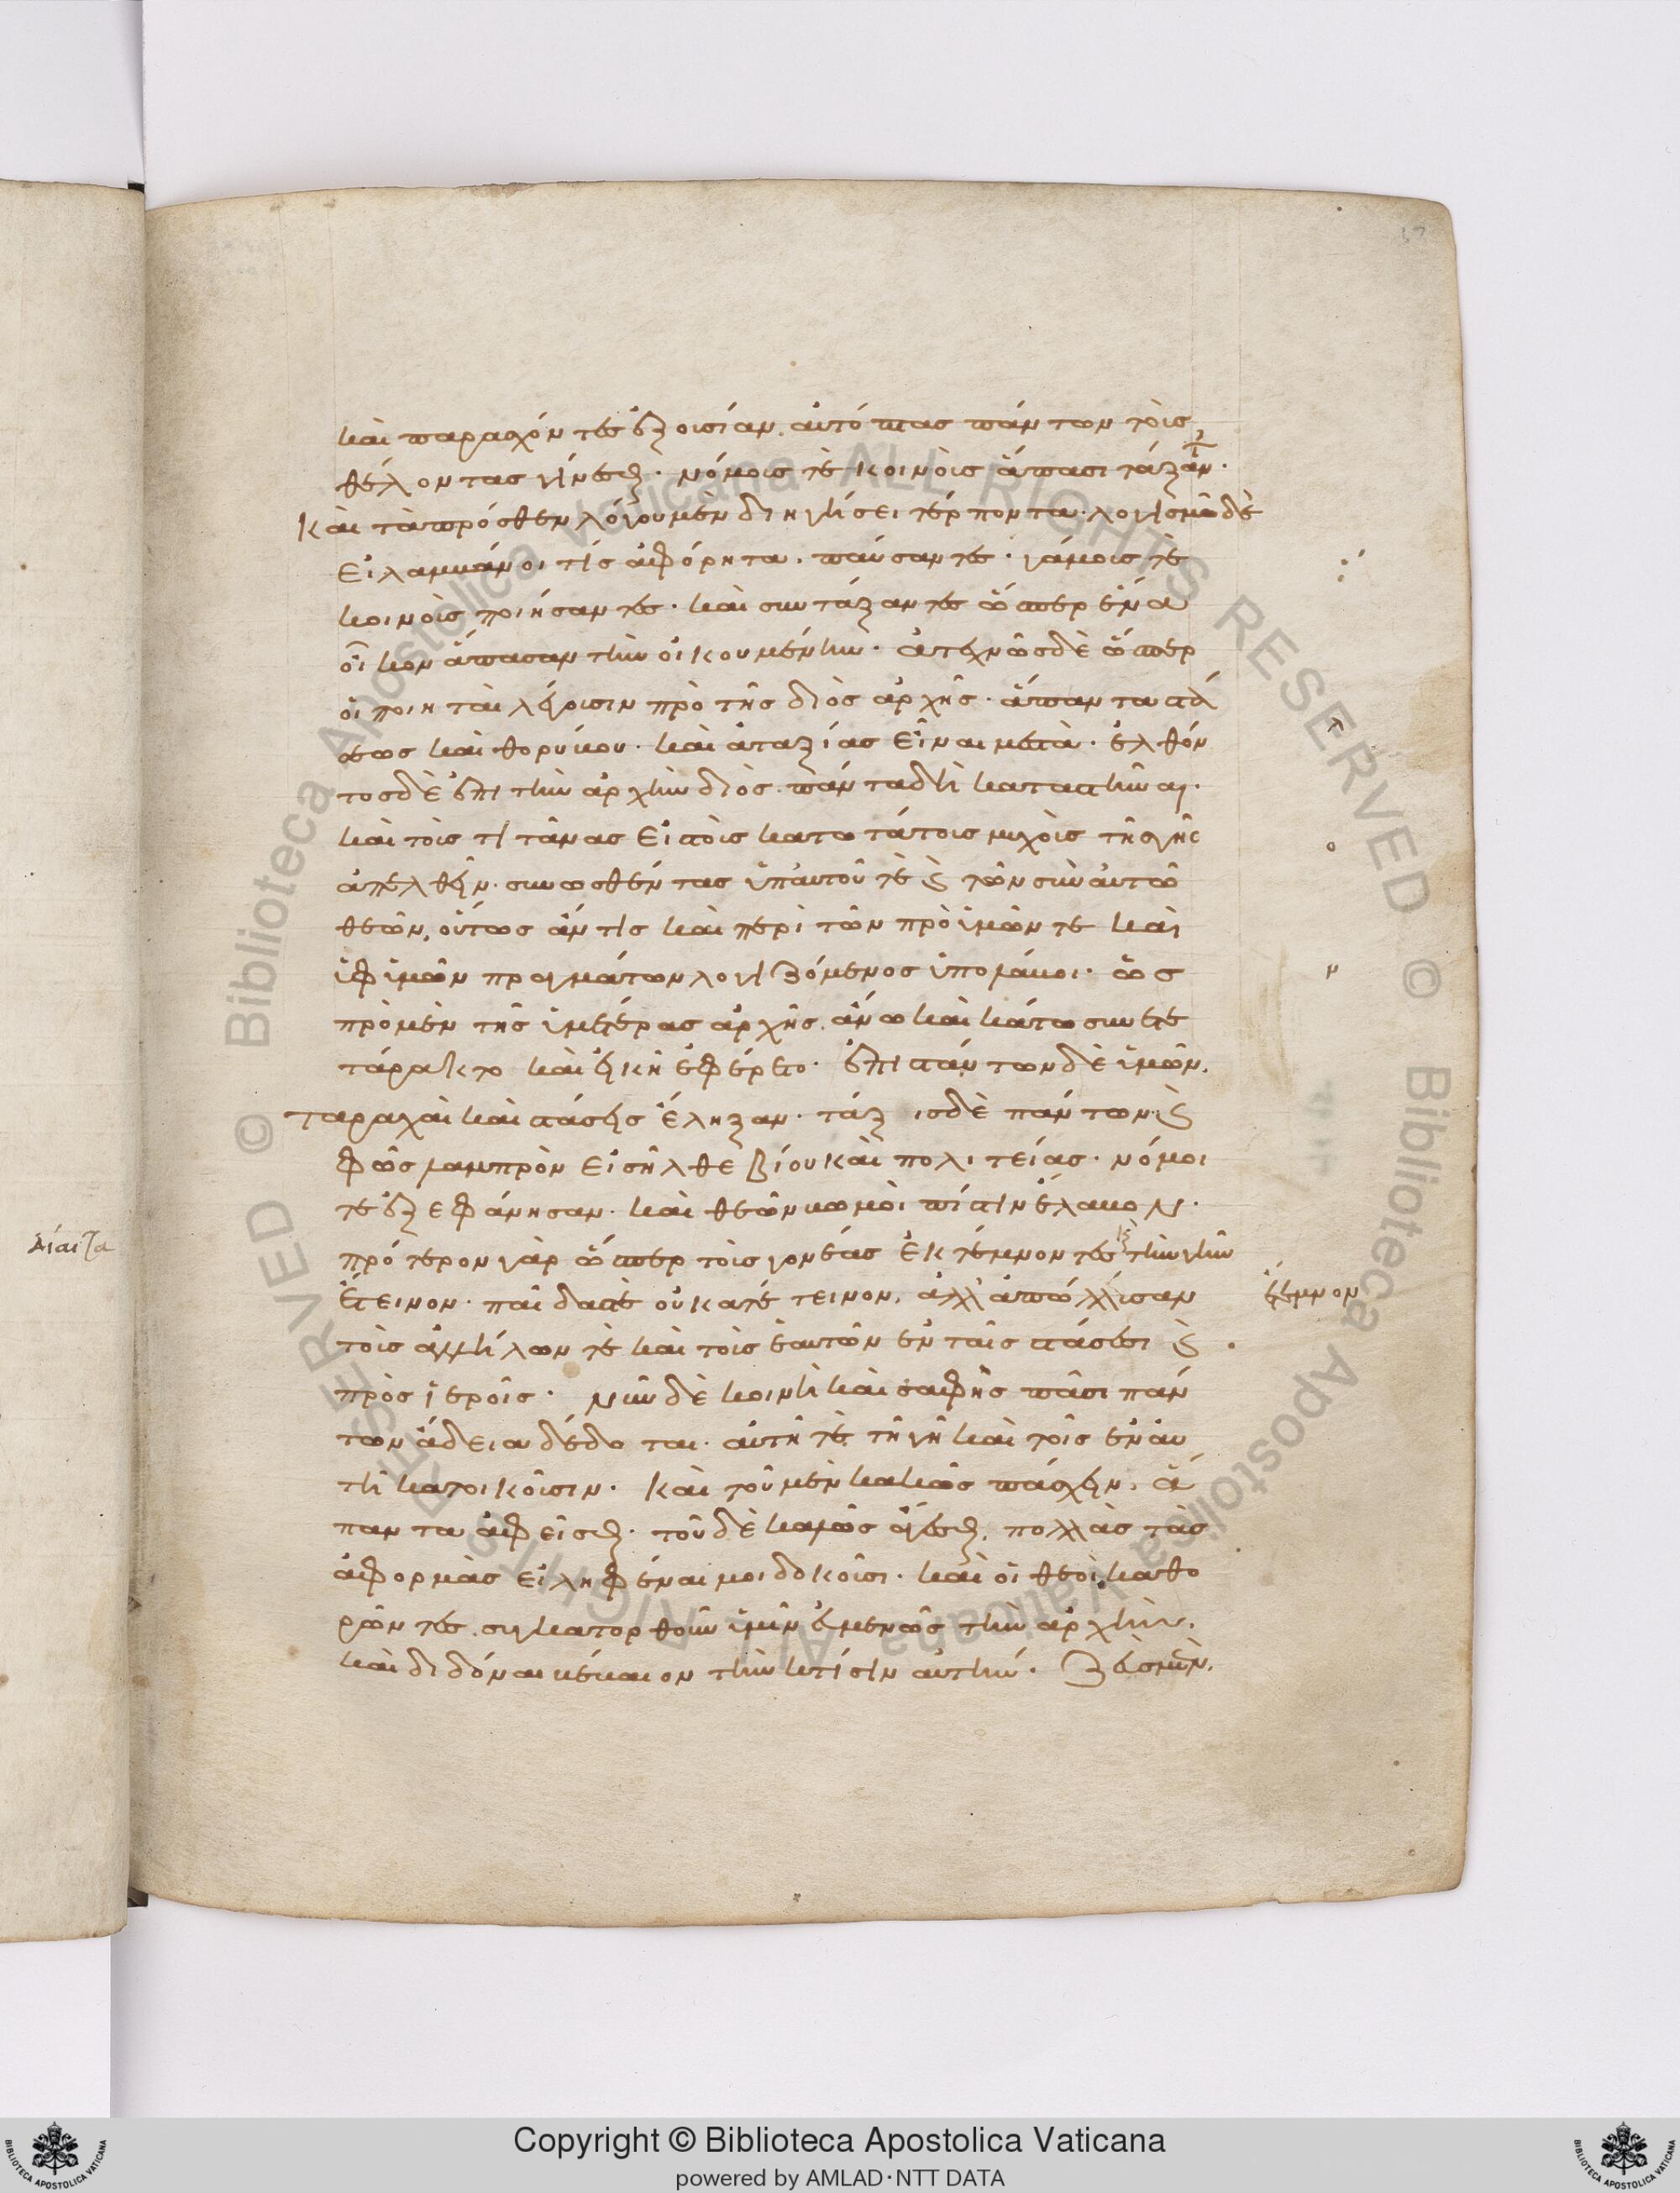 καὶ παρασχόντες ἐξουσίαν αὐτόπτας πάντων τοὺς
θέλοντας γίνεσθαι· νόμους τὲ κοινοὺς ἅπασι τάξαντ
καὶ τὰ πρόσθεν λόγου μὲν διηγήσει τέρποντα· λογισμῶ δὲ
εἰ λαμβάνοι τίς ἀφόρητα· παύσαντες· γάμους τὲ
κοινοὺς ποιήσαντες· καὶ συντάξαντες ὥσπερ ἕνα
οἶκον ἅπασαν τὴν οἰκουμένην· ἀτεχνῶς δὲ ὥσπερ
οἱ ποιηταὶ λέγουσιν πρὸ τῆς διὸς ἀρχῆς· ἅπαντα στά
σεως καὶ θορύβου· καὶ ἀταξίας εἶναι μεστὰ· ἐλθόν
τος δὲ ἐπι τὴν ἀρχὴν διὸς· πάντα δὴ καταστῆναι·
καὶ τοὺς τιτᾶνας εἰς τοὺς κατωτάτους μυχοὺς τῆς γῆς
ἀπελθεῖν· συνωσθέντας ὑπ' αὐτοῦ τὲ καὶ τῶν σὺν αὐτῶ
θεῶν, οὕτως ἄν τις καὶ περὶ τῶν πρὸ ὑμῶν τε καὶ
ἐφ' ὑμῶν πραγμάτων λογιζόμενος ὑπολάβοι· ὡς
πρὸ μὲν τῆς ὑμετέρας ἀρχῆς, ἄνω καὶ κάτω συνετε
τάρακτο καὶ εἰκῆ ἐφέρετο· ἐπιστάντων δὲ ὑμῶν,
ταραχαὶ καὶ στάσεις ἔληξαν· τάξις δὲ πάντων καὶ
φῶς λαμπρὸν εἰσῆλθε βίου καὶ πολιτείας· νόμοι
τε ἐξεφάνησαν· καὶ θεῶν βωμοὶ πίστιν ἔλαβον·
πρότερον γὰρ ὥσπερ τοὺς γονέας ἐκτέμνοντες τὴν γῆν
ἔτεινον· παῖδας τε οὐ κατέτεινον, ἀλλ' ἀπώλλυσαν
ἔτεμνον
τοὺς ἀλλήλων τὲ καὶ τοὺς ἑαυτῶν ἐν ταῖς στάσεσι καὶ
πρὸς ἱεροῖς· νῦν δὲ κοινὴ καὶ σαφὴς πᾶσι πάν
των ἄδεια δέδοται· αὐτῆ τὲ τῆ γῆ καὶ τοῖς ἐν αὐ
τῆ κατοικοῦσιν· καὶ τοῦ μὲν κακῶς πάσχειν, ἅ
παντα ἀφεῖσθαι· τοῦ δὲ καλῶς ἄγεσθαι, πολλὰς τὰς
ἀφορμὰς εἰληφέναι μοι δοκοῦσι· καὶ οἱ θεοὶ καθο
ρῶντες, συγκατορθοῦν ὑμῖν εὐμενῶς τὴν ἀρχὴν,
καὶ διδόναι βέβαιον τὴν κτίσιν αὐτὴν· ζεὺς μὲν,